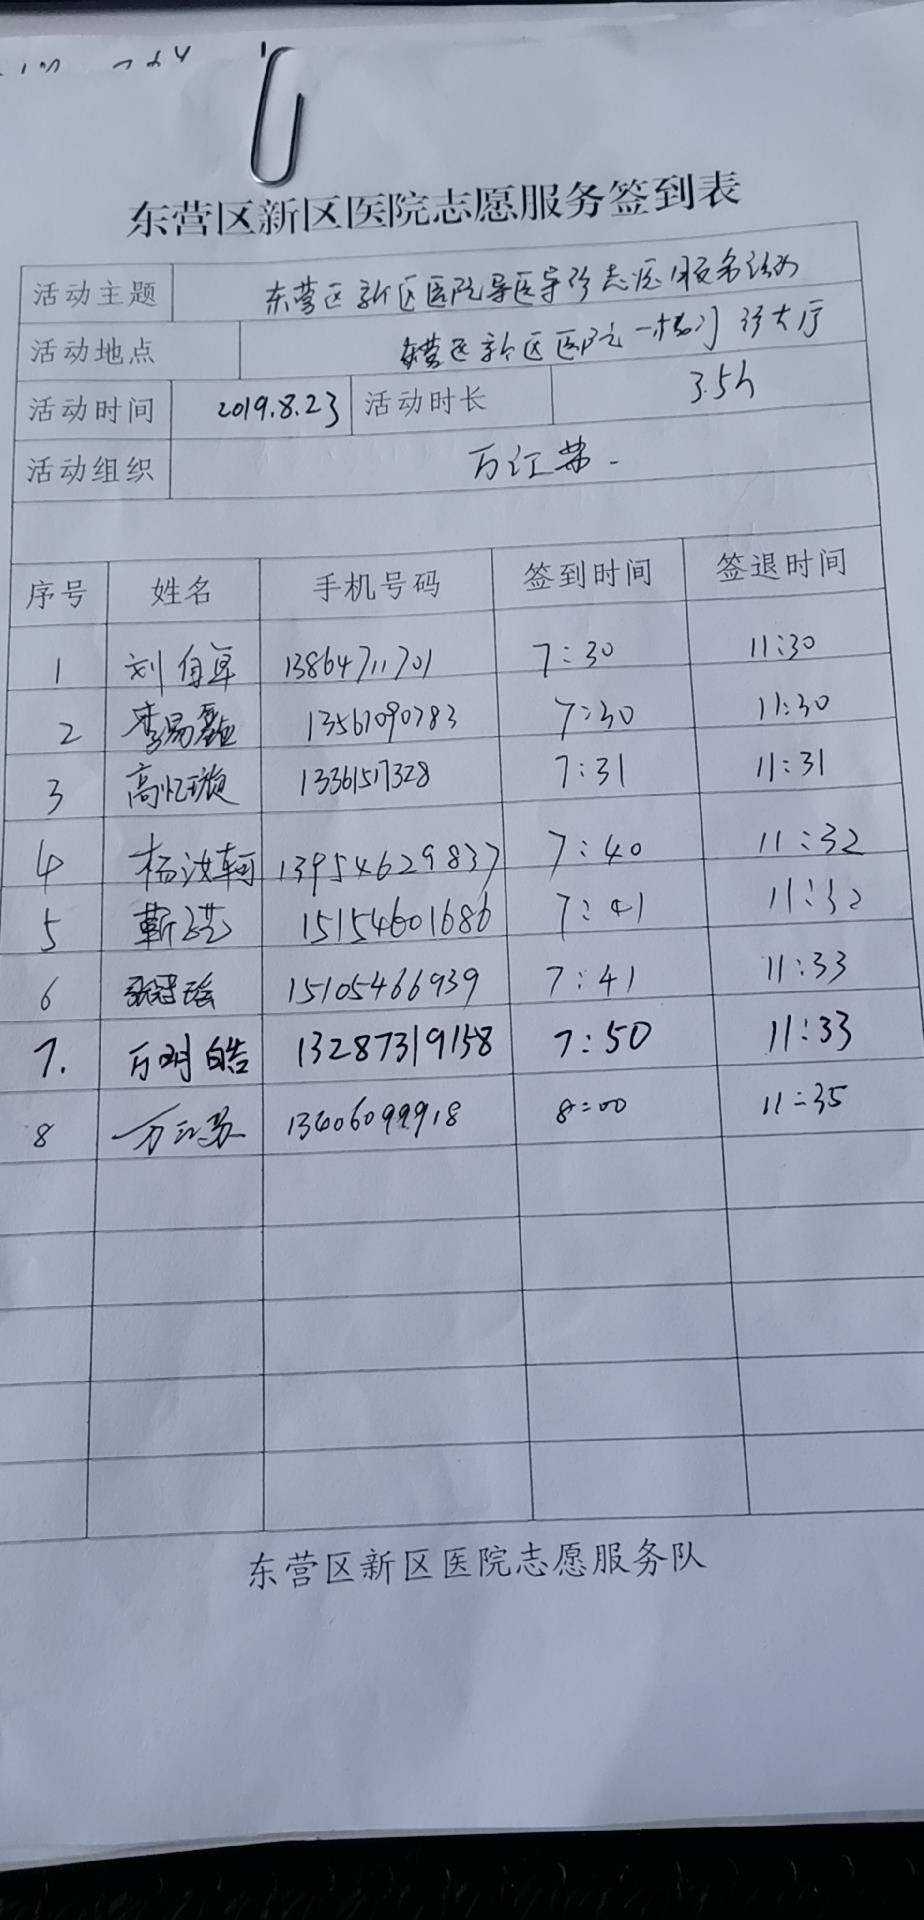 东营区新区医院志愿服务签到表
活动主题 东营区新区医院导医导诊志愿服务活动
活动地点 东营区新区医院一楼门诊大厅
活动时间 2019.8.23 活动时长 3.5h
活动组织 万江
序号 姓名 手机号码 签到时间 签退时间
1 刘 13864711701 7:30 11:30
2 李易 13561090783 7:30 11:30
3 高忆璇 13361517328 7:31 11:31
4 杨汝轲 13954629837 7:40 11:32
5 靳 15154601686 7:41 11:32
6 15105466939 7:41 11:33
7. 万明皓 13287319158 7:50 11:33
8 万江 13606099918 8:00 11:35
东营区新区医院志愿服务队